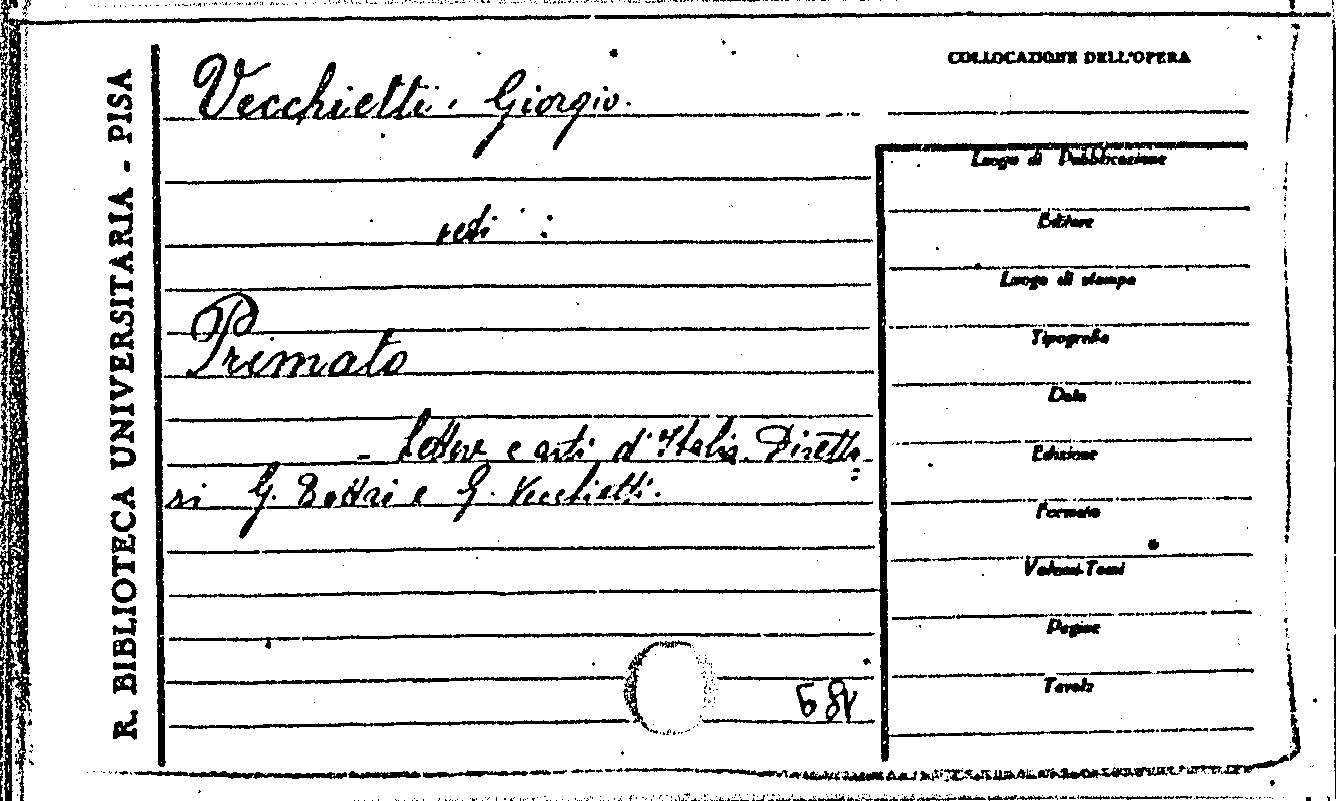 R. BIBLIOTECA UNIVERSITARIA - PISA
Vecchietti. Giorgio.
vedi :
Primato
- lettere e arti d'Italia. Diretto=
ri G. Bottai e G. Vecchietti.
COLLOCAZIONE DELL'OPERA
Luogo di Pubblicazione
Editore
Luogo di stampa
Tipografia
Data
Edizione
Formato
Volumi-Tomi
Pagine
Tavole